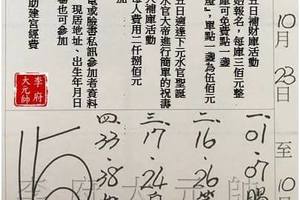 五日補財庫活動
始報名，每庫三佰元整
庫可免費點一盞
」單點一盞為伍佰元
五日適逢下元水官聖誕
水官大帝進行簡單的祝壽
補庫活動
每人費用二仟捌佰元
電或臉書私訊參加者資料
、現居地址、出生年月日
場也可參加
助建宮經費
李府大元帥
10月23日至10
一.01.07
二.16.26
三.17.24
四.33.38
15
李府大元帥